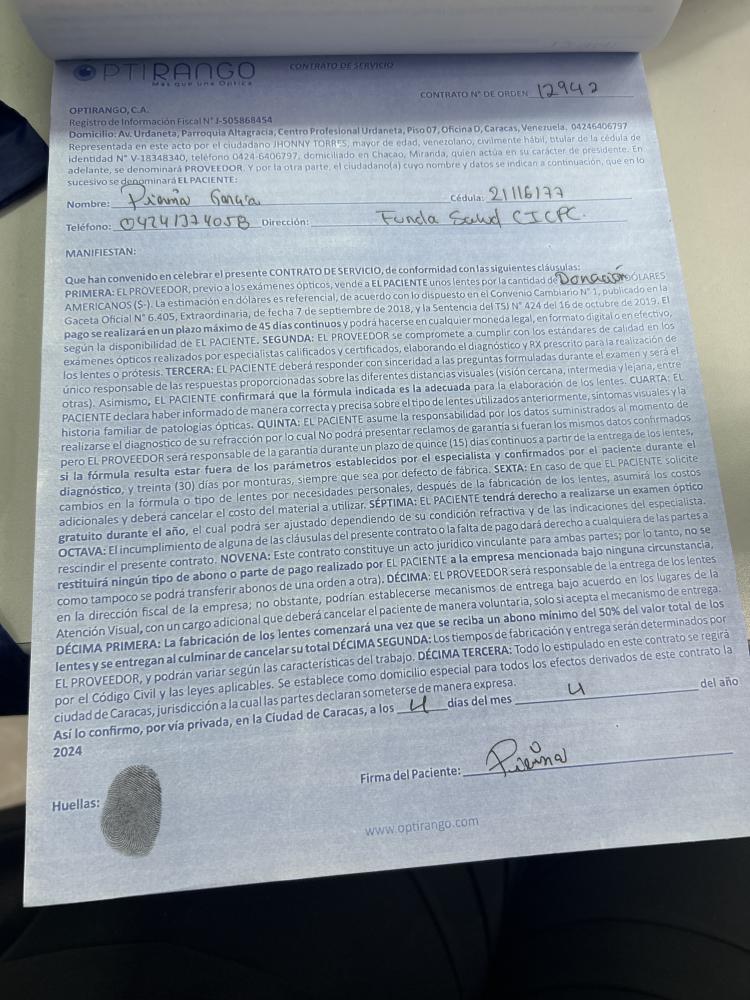 OPTIRANGO
Mas que una Óptica
CONTRATO DE SERVICIO
CONTRATO N° DE ORDEN 12942
OPTIRANGO, C.A.
Registro de Información Fiscal N° J-505868454
Domicilio: Av. Urdaneta, Parroquia Altagracia, Centro Profesional Urdaneta, Piso 07, Oficina D, Caracas, Venezuela. 04246406797
Representada en este acto por el ciudadano JHONNY TORRES, mayor de edad, venezolano, civilmente hábil, titular de la cédula de
identidad N° V-18348340, teléfono 0424-6406797, domiciliado en Chacao, Miranda, quien actúa en su carácter de presidente. En
adelante, se denominará PROVEEDOR. Y por la otra parte, el ciudadano(a) cuyo nombre y datos se indican a continuación, que en lo
sucesivo se denominará EL PACIENTE:
Nombre: García Cédula: 21116177
Teléfono: Dirección: Funda Salud CICPC.
MANIFIESTAN:
Que han convenido en celebrar el presente CONTRATO DE SERVICIO, de conformidad con las siguientes cláusulas:
PRIMERA: EL PROVEEDOR, previo a los exámenes ópticos, vende a EL PACIENTE unos lentes por la cantidad de Donación DÓLARES
AMERICANOS ($-). La estimación en dólares es referencial, de acuerdo con lo dispuesto en el Convenio Cambiario N° 1, publicado en la
Gaceta Oficial N° 6.405, Extraordinaria, de fecha 7 de septiembre de 2018, y la Sentencia del TSJ N° 424 del 16 de octubre de 2019. El
pago se realizará en un plazo máximo de 45 días continuos y podrá hacerse en cualquier moneda legal, en formato digital o en efectivo,
según la disponibilidad de EL PACIENTE. SEGUNDA: EL PROVEEDOR se compromete a cumplir con los estándares de calidad en los
exámenes ópticos realizados por especialistas calificados y certificados, elaborando el diagnóstico y RX prescrito para la realización de
los lentes o prótesis. TERCERA: EL PACIENTE deberá responder con sinceridad a las preguntas formuladas durante el examen y será el
único responsable de las respuestas proporcionadas sobre las diferentes distancias visuales (visión cercana, intermedia y lejana, entre
otras). Asimismo, EL PACIENTE confirmará que la fórmula indicada es la adecuada para la elaboración de los lentes. CUARTA: EL
PACIENTE declara haber informado de manera correcta y precisa sobre el tipo de lentes utilizados anteriormente, síntomas visuales y la
historia familiar de patologías ópticas. QUINTA: EL PACIENTE asume la responsabilidad por los datos suministrados al momento de
realizarse el diagnostico de su refracción por lo cual No podrá presentar reclamos de garantía si fueran los mismos datos confirmados
pero EL PROVEEDOR será responsable de la garantía durante un plazo de quince (15) días continuos a partir de la entrega de los lentes,
si la fórmula resulta estar fuera de los parámetros establecidos por el especialista y confirmados por el paciente durante el
diagnóstico, y treinta (30) días por monturas, siempre que sea por defecto de fábrica. SEXTA: En caso de que EL PACIENTE solicite
cambios en la fórmula o tipo de lentes por necesidades personales, después de la fabricación de los lentes, asumirá los costos
adicionales y deberá cancelar el costo del material a utilizar. SÉPTIMA: EL PACIENTE tendrá derecho a realizarse un examen óptico
gratuito durante el año, el cual podrá ser ajustado dependiendo de su condición refractiva y de las indicaciones del especialista.
OCTAVA: El incumplimiento de alguna de las cláusulas del presente contrato o la falta de pago dará derecho a cualquiera de las partes a
rescindir el presente contrato. NOVENA: Este contrato constituye un acto jurídico vinculante para ambas partes; por lo tanto, no se
restituirá ningún tipo de abono o parte de pago realizado por EL PACIENTE a la empresa mencionada bajo ninguna circunstancia,
como tampoco se podrá transferir abonos de una orden a otra). DÉCIMA: EL PROVEEDOR será responsable de la entrega de los lentes
en la dirección fiscal de la empresa; no obstante, podrían establecerse mecanismos de entrega bajo acuerdo en los lugares de la
Atención Visual, con un cargo adicional que deberá cancelar el paciente de manera voluntaria, solo si acepta el mecanismo de entrega.
DÉCIMA PRIMERA: La fabricación de los lentes comenzará una vez que se reciba un abono mínimo del 50% del valor total de los
lentes y se entregan al culminar de cancelar su total DÉCIMA SEGUNDA: Los tiempos de fabricación y entrega serán determinados por
EL PROVEEDOR, y podrán variar según las características del trabajo. DÉCIMA TERCERA: Todo lo estipulado en este contrato se regirá
por el Código Civil y las leyes aplicables. Se establece como domicilio especial para todos los efectos derivados de este contrato la
ciudad de Caracas, jurisdicción a la cual las partes declaran someterse de manera expresa.
Así lo confirmo, por vía privada, en la Ciudad de Caracas, a los 4 días del mes 4 del año
2024
Firma del Paciente:
Huellas:
www.optirango.com